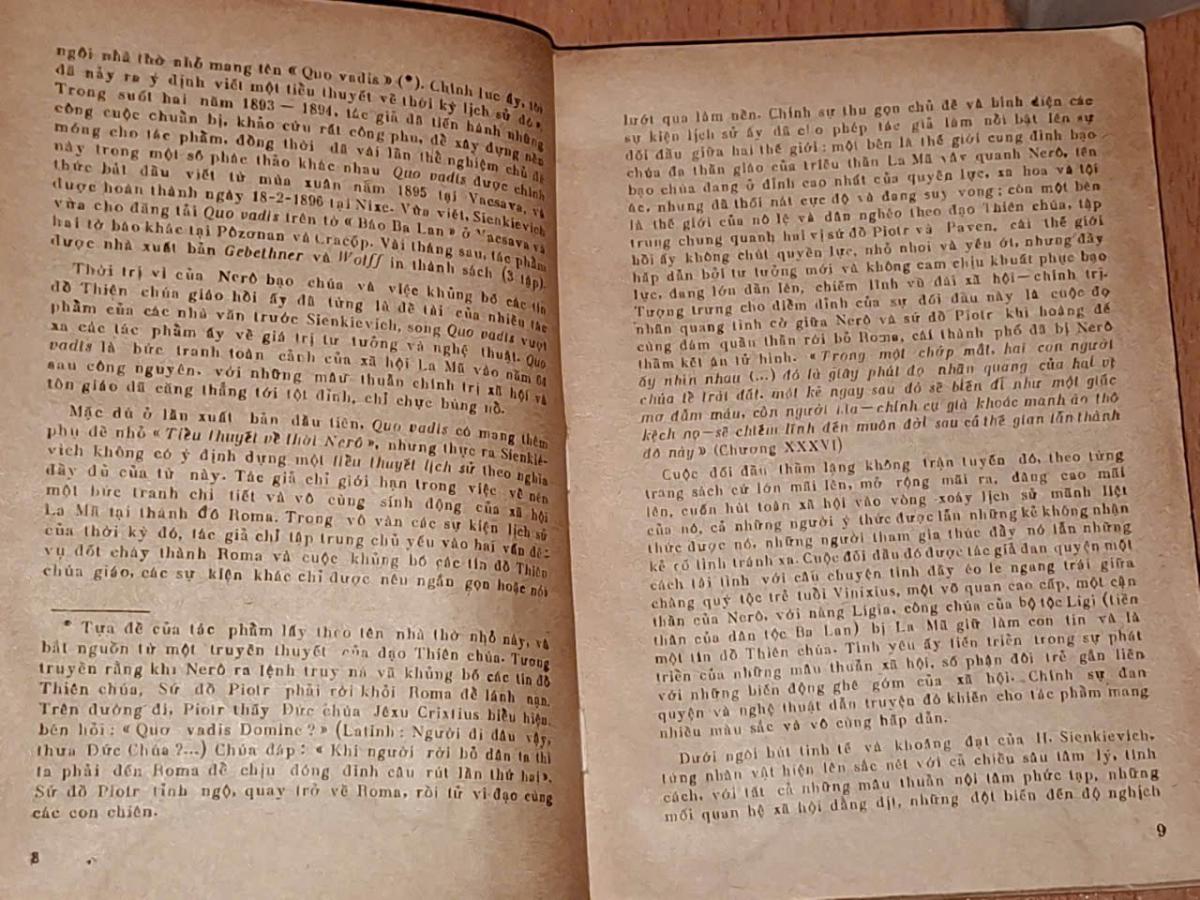 ngôi nhà thờ nhỏ mang tên « Quo vadis » (*). Chính lúc ấy, tôi
đã nảy ra ý định viết một tiểu thuyết về thời kỳ lịch sử đó».
Trong suốt hai năm 1893 — 1894, tác giả đã tiến hành những
công cuộc chuẩn bị, khảo cứu rất công phu, để xây dựng nền
móng cho tác phẩm, đồng thời đã vài lần thể nghiệm chủ đề
này trong một số phác thảo khác nhau Quo vadis được chính
thức bắt đầu viết từ mùa xuân năm 1895 tại Vacsava, và
được hoàn thành ngày 18-2-1896 tại Nixe. Vừa viết, Sienkievich
vừa cho đăng tải Quo vadis trên tờ « Báo Ba Lan » ở Vacsava và
hai tờ báo khác tại Pôzơnan và Cracốp. Vài tháng sau, tác phẩm
được nhà xuất bản Gebethner và Wolff in thành sách (3 tập).
Thời trị vì của Nerô bạo chúa và việc khủng bố các tín
đồ Thiên chúa giáo hồi ấy đã từng là đề tài của nhiều tác
phẩm của các nhà văn trước Sienkievich, song Quo vadis vượt
xa các tác phẩm ấy về giá trị tư tưởng và nghệ thuật. Quo
vadis là bức tranh toàn cảnh của xã hội La Mã vào năm 64
sau công nguyên, với những mâu thuẫn chính trị xã hội và
tôn giáo đã căng thẳng tới tột đỉnh, chỉ chực bùng nổ.
Mặc dù ở lần xuất bản đầu tiên, Quo vadis có mang thêm
phụ đề nhỏ « Tiểu thuyết về thời Nerô », nhưng thực ra Sienkie-
vich không có ý định dựng một tiểu thuyết lịch sử theo nghĩa
đầy đủ của từ này. Tác giả chỉ giới hạn trong việc vẽ nên
một bức tranh chi tiết và vô cùng sinh động của xã hội
La Mã tại thành đô Roma. Trong vô vàn các sự kiện lịch sử
của thời kỳ đó, tác giả chỉ tập trung chủ yếu vào hai vấn đề:
vụ đốt cháy thành Roma và cuộc khủng bố các tín đồ Thiên
chúa giáo, các sự kiện khác chỉ được nêu ngắn gọn hoặc nói
* Tựa đề của tác phẩm lấy theo tên nhà thờ nhỏ này, và
bắt nguồn từ một truyền thuyết của đạo Thiên chúa. Tương
truyền rằng khi Nerô ra lệnh truy nã và khủng bố các tín đồ
Thiên chúa, Sứ đồ Piotr phải rời khỏi Roma để lánh nạn.
Trên đường đi, Piotr thấy Đức chúa Jêxu Crixtius hiển hiện,
bèn hỏi : « Quo vadis Domine ? » (Latinh : Người đi đâu vậy,
thưa Đức Chúa ?...) Chúa đáp : « Khi ngươi rời bỏ dân ta thì
ta phải đến Roma để chịu đóng đinh câu rút lần thứ hai».
Sứ đồ Piotr tỉnh ngộ, quay trở về Roma, rồi tử vì đạo cùng
các con chiên.
8
lướt qua làm nền. Chính sự thu gọn chủ đề và bình diện các
sự kiện lịch sử ấy đã cho phép tác giả làm nổi bật lên sự
đối đầu giữa hai thế giới : một bên là thế giới cung đình bạo
chúa đa thần giáo của triều thần La Mã vây quanh Nerô, tên
bạo chúa đang ở đỉnh cao nhất của quyền lực, xa hoa và tội
ác, nhưng đã thối nát cực độ và đang suy vong ; còn một bên
là thế giới của nô lệ và dân nghèo theo đạo Thiên chúa, tập
trung chung quanh hai vị sứ đồ Piotr và Paven, cái thế giới
hồi ấy không chút quyền lực, nhỏ nhoi và yếu ớt, nhưng đầy
hấp dẫn bởi tư tưởng mới và không cam chịu khuất phục bạo
lực, đang lớn dần lên, chiếm lĩnh vũ đài xã hội—chính trị.
Tượng trưng cho điểm đỉnh của sự đối đầu này là cuộc đọ
nhãn quang tình cờ giữa Nerô và sứ đồ Piotr khi hoàng đế
cùng đám quần thần rời bỏ Roma, cái thành phố đã bị Nerô
thầm kết án tử hình. « Trong một chớp mắt, hai con người
ấy nhìn nhau (...) đó là giây phút đọ nhãn quang của hai vị
chúa tể trái đất, một kẻ ngay sau đó sẽ biến đi như một giấc
mơ đẫm máu, còn người kia—chính cụ già khoác manh áo thô
kệch nọ—sẽ chiếm lĩnh đến muôn đời sau cả thế gian lẫn thành
đô này » (Chương XXXVI)
Cuộc đối đầu thầm lặng không trận tuyến đó, theo từng
trang sách cứ lớn mãi lên, mở rộng mãi ra, dâng cao mãi
lên, cuốn hút toàn xã hội vào vòng xoáy lịch sử mãnh liệt
của nó, cả những người ý thức được lẫn những kẻ không nhận
thức được nó, những người tham gia thúc đẩy nó lẫn những
kẻ cố tình tránh xa. Cuộc đối đầu đó được tác giả đan quyện một
cách tài tình với câu chuyện tình đầy éo le ngang trái giữa
chàng quý tộc trẻ tuổi Vinixius, một võ quan cao cấp, một cận
thần của Nerô, với nàng Ligia, công chúa của bộ tộc Ligi (tiền
thân của dân tộc Ba Lan) bị La Mã giữ làm con tin và là
một tín đồ Thiên chúa. Tình yêu ấy tiến triển trong sự phát
triển của những mâu thuẫn xã hội, số phận đôi trẻ gắn liền
với những biến động ghê gớm của xã hội. Chính sự đan
quyện và nghệ thuật dẫn truyện đó khiến cho tác phẩm mang
nhiều màu sắc và vô cùng hấp dẫn.
Dưới ngòi bút tinh tế và khoáng đạt của H. Sienkievich,
từng nhân vật hiện lên sắc nét với cả chiều sâu tâm lý, tính
cách, với tất cả những mâu thuẫn nội tâm phức tạp, những
mối quan hệ xã hội dằng dịt, những đột biến đến độ nghịch
9